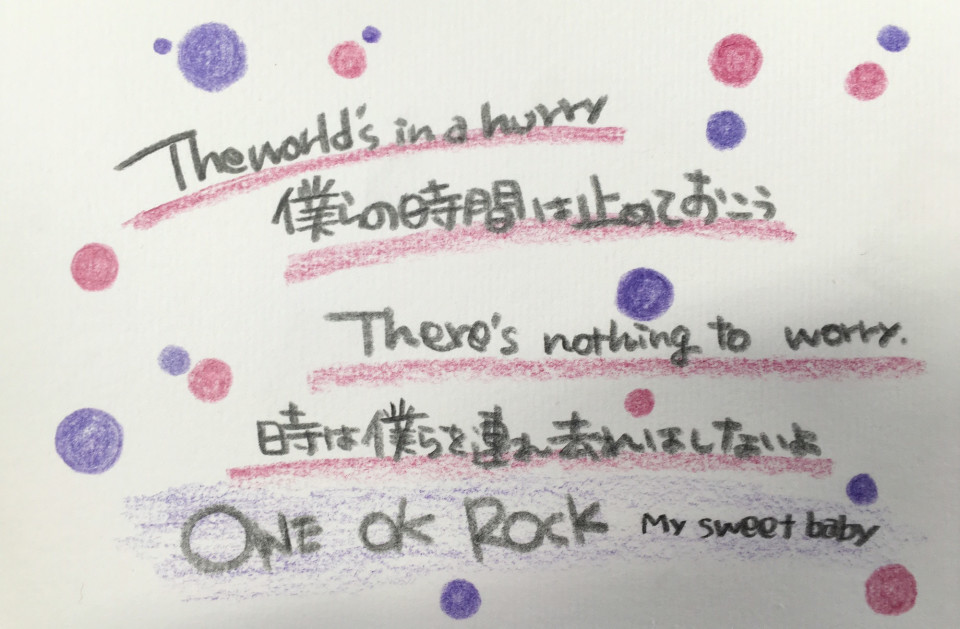 The world's in a hurry
僕らの時間は止めておこう
There's nothing to worry.
時は僕らを連れ去れはしないよ
ONE OK ROCK My sweet baby